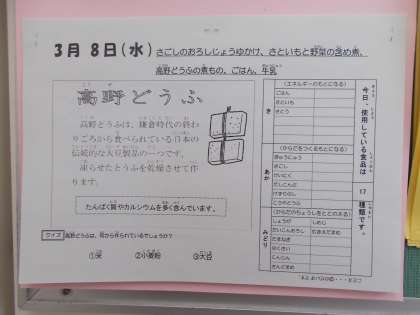 3月 8日(水)
さごしのおろしじょうゆかけ、さといもと野菜の含め煮、
高野どうふの煮もの、ごはん、牛乳
高野どうふ
高野どうふは、鎌倉時代の終わ
りごろから食べられている日本の
伝統的な大豆製品の一つです。
凍らせたとうふを乾燥させて作
ります。
たんぱく質やカルシウムを多く含んでいます。
クイズ 高野どうふは、何から作られているでしょうか?
①米 ②小麦粉 ③大豆
今日、使用している食品は 17 種類です。
き
(エネルギーのもとになる)
ごはん
さといも
さとう
あか
(からだをつくるもとになる)
ぎゅうにゅう
さごし
けいにく
だしこんぶ
けずりぶし
こうやどうふ
みどり
(からだのちょうしをととのえる)
しょうが しめじ
だいこんおろし
たまねぎ
はくさい
にんじん
さんどまめ